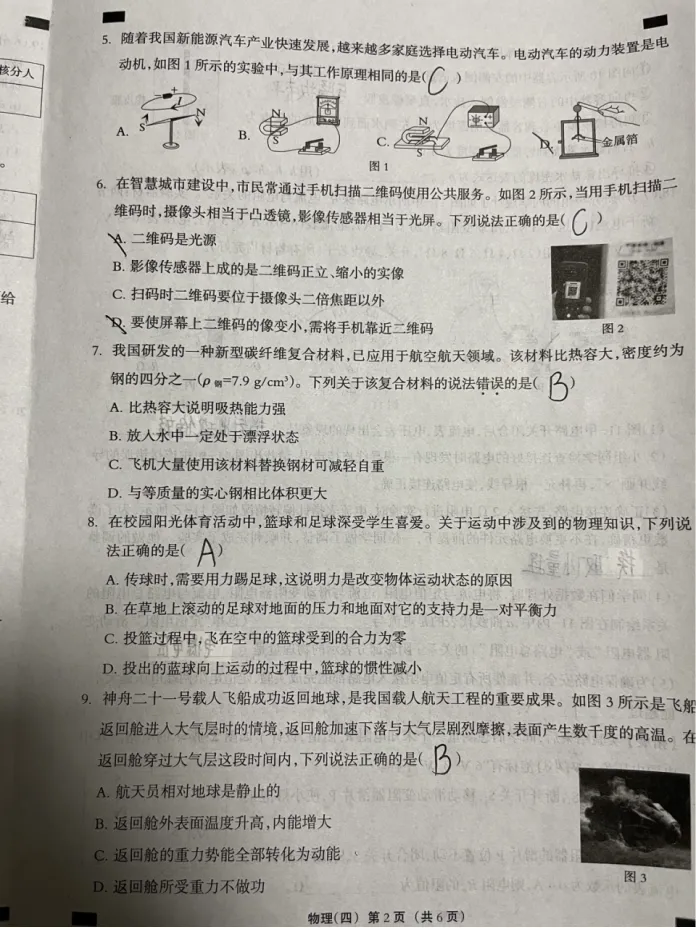 核分人
给
5. 随着我国新能源汽车产业快速发展,越来越多家庭选择电动汽车。电动汽车的动力装置是电
动机,如图 1 所示的实验中,与其工作原理相同的是( C )
A. S N I
B. N S
C. N S
D. 金属箔
图 1
6. 在智慧城市建设中,市民常通过手机扫描二维码使用公共服务。如图 2 所示,当用手机扫描二
维码时,摄像头相当于凸透镜,影像传感器相当于光屏。下列说法正确的是( C )
A. 二维码是光源
B. 影像传感器上成的是二维码正立、缩小的实像
C. 扫码时二维码要位于摄像头二倍焦距以外
D. 要使屏幕上二维码的像变小,需将手机靠近二维码
图 2
7. 我国研发的一种新型碳纤维复合材料,已应用于航空航天领域。该材料比热容大,密度约为
钢的四分之一(ρ钢=7.9 g/cm³)。下列关于该复合材料的说法错误的是( B )
A. 比热容大说明吸热能力强
B. 放入水中一定处于漂浮状态
C. 飞机大量使用该材料替换钢材可减轻自重
D. 与等质量的实心钢相比体积更大
8. 在校园阳光体育活动中,篮球和足球深受学生喜爱。关于运动中涉及到的物理知识,下列说
法正确的是( A )
A. 传球时,需要用力踢足球,这说明力是改变物体运动状态的原因
B. 在草地上滚动的足球对地面的压力和地面对它的支持力是一对平衡力
C. 投篮过程中,飞在空中的篮球受到的合力为零
D. 投出的蓝球向上运动的过程中,篮球的惯性减小
9. 神舟二十一号载人飞船成功返回地球,是我国载人航天工程的重要成果。如图 3 所示是飞船
返回舱进入大气层时的情境,返回舱加速下落与大气层剧烈摩擦,表面产生数千度的高温。在
返回舱穿过大气层这段时间内,下列说法正确的是( B )
A. 航天员相对地球是静止的
B. 返回舱外表面温度升高,内能增大
C. 返回舱的重力势能全部转化为动能
D. 返回舱所受重力不做功
图 3
物理(四) 第 2 页 (共 6 页)